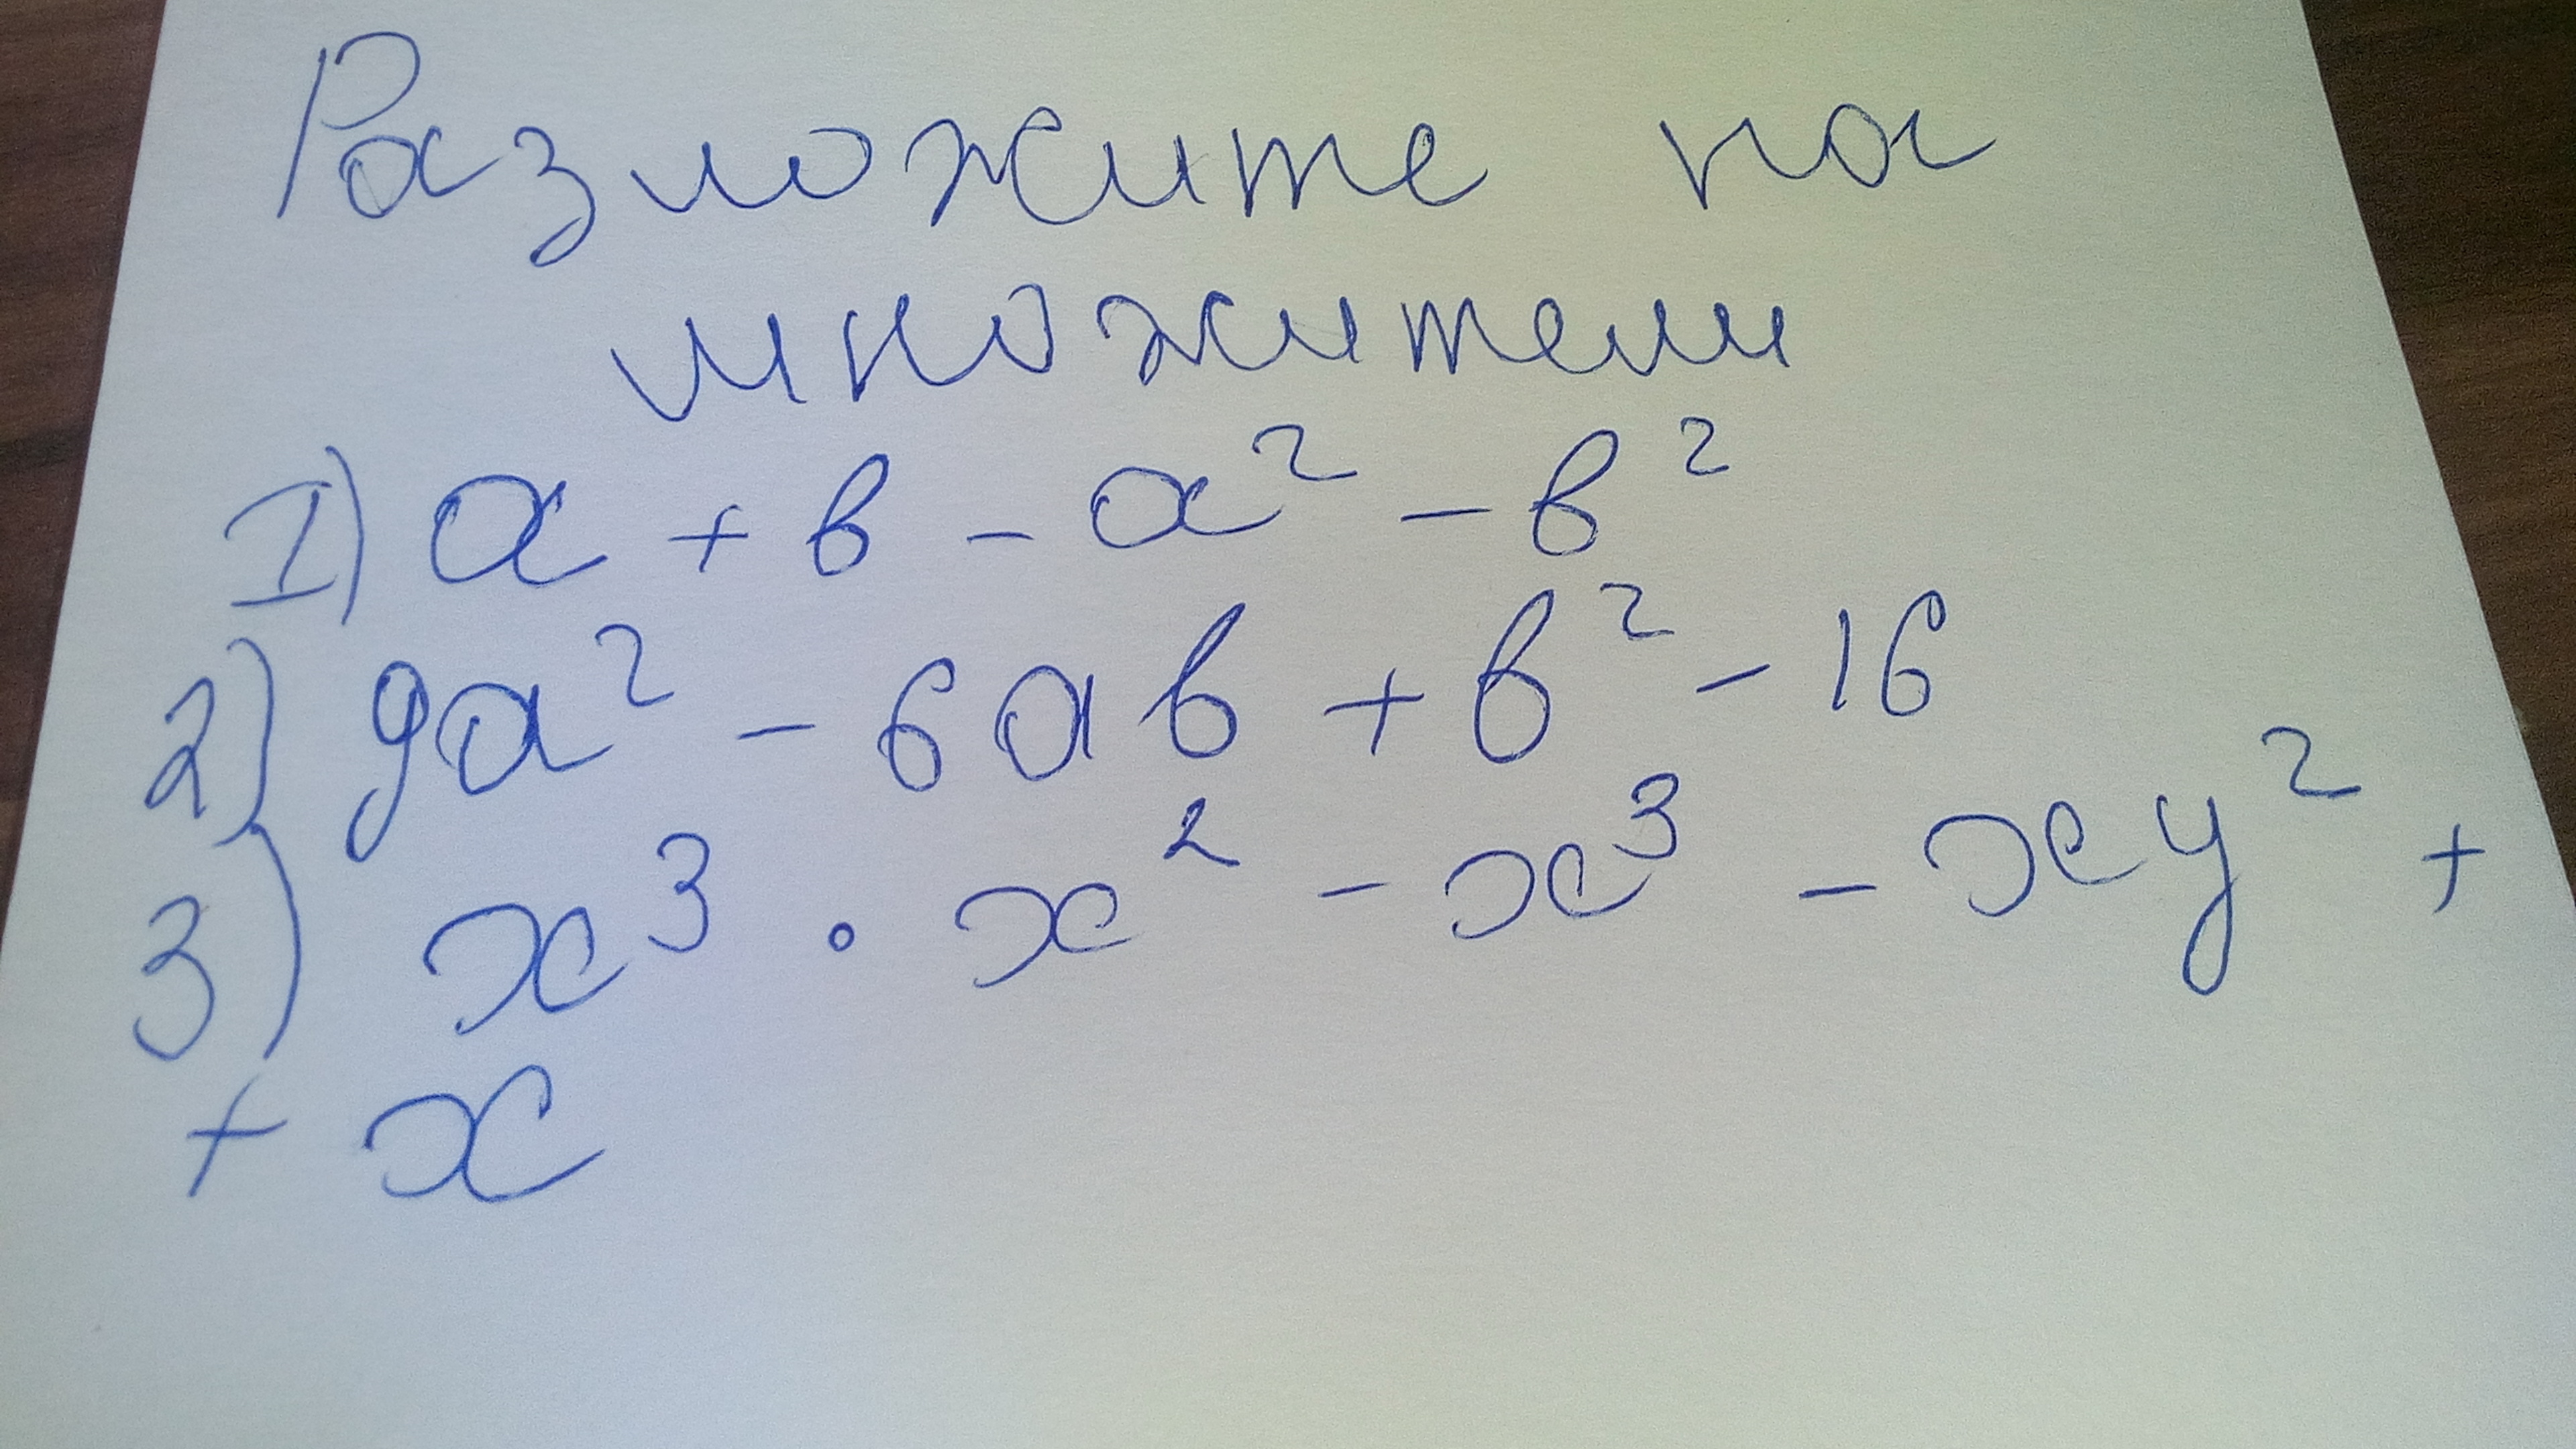 Разложите на
множители
1) a + b - a² - b²
2) 9a² - 6ab + b² - 16
3) x³ · x² - x³ - xy² +
+ x